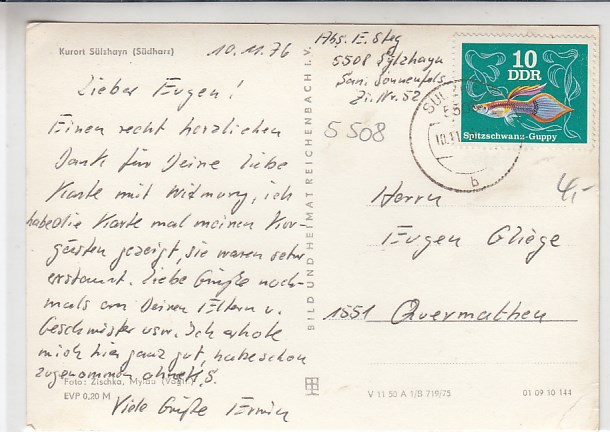 Kurort Sülzhayn (Südharz)
10.11.76
Lieber Eugen!
Einen recht herzlichen
Dank für Deine liebe
Karte mit Widmung, ich
habe die Karte mal meinen Kur-
gästen gezeigt, sie waren sehr
erstaunt. Liebe Grüße noch-
mals an Deinen Eltern u.
Geschwister usw. Ich erhole
mich hier ganz gut, habe schon
zugenommen
Viele Grüße Erwin
Foto: Zschka, Mylau (Vogtl.)
EVP 0,20 M
BILD UND HEIMAT REICHENBACH I. V.
Abs. E. Steg
5508 Sülzhayn
San. Sonnenfels
Zi. Nr. 52
5508
10
DDR
Spitzschwanz-Guppy
10.11
b
4,-
Herrn
Eugen Gliege
1551 Quermathen
V 11 50 A 1/B 719/75
01 09 10 144